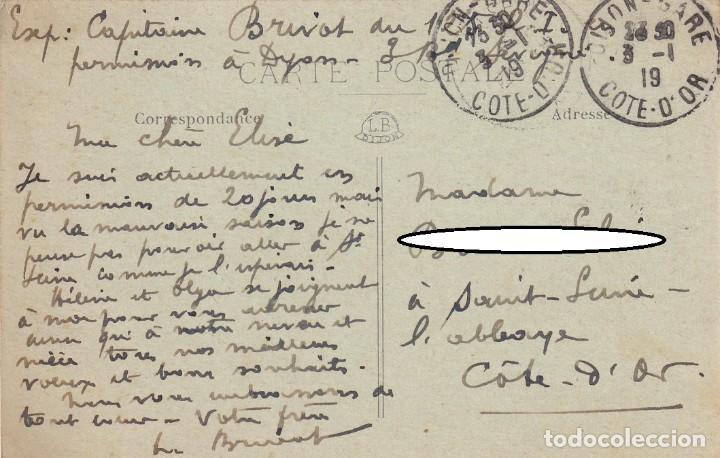 Exp: Capitaine Brivot du
permission à Dijon -
CARTE POSTALE
DIJON-GARE
23 30
3 -1
19
COTE-D'OR
DIJON-GARE
23 30
3 -1
19
COTE-D'OR
Correspondance
L.B
DIJON
Adresse
Ma chère Elise
Je suis actuellement en
permission de 20 jours mais
vu la mauvaise saison je ne
peux pas pouvoir aller à St
Seine comme je l'espérais -
Hélène et Olga se joignent
à moi pour vous adresser
ainsi qu'à notre neveu et
nièce tous nos meilleurs
voeux et bons souhaits.
Nous vous embrassons de
tout coeur - Votre frère
Brivot
Madame
à Saint-Seine-
l'abbaye
Côte-d'Or.
todocoleccion